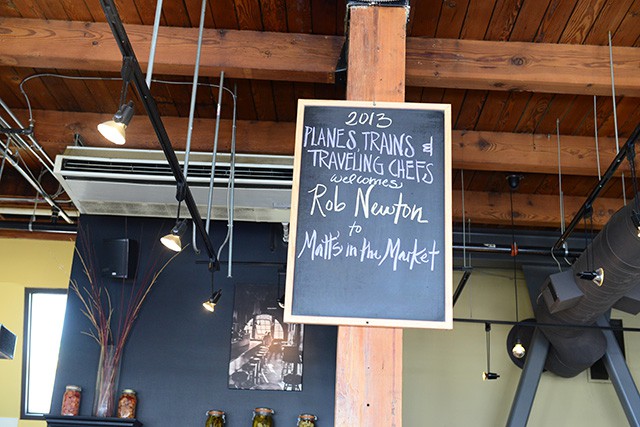 2013
PLANES, TRAINS &
TRAVELING CHEFS
welcomes
Rob Newton
to
Matt's in the Market